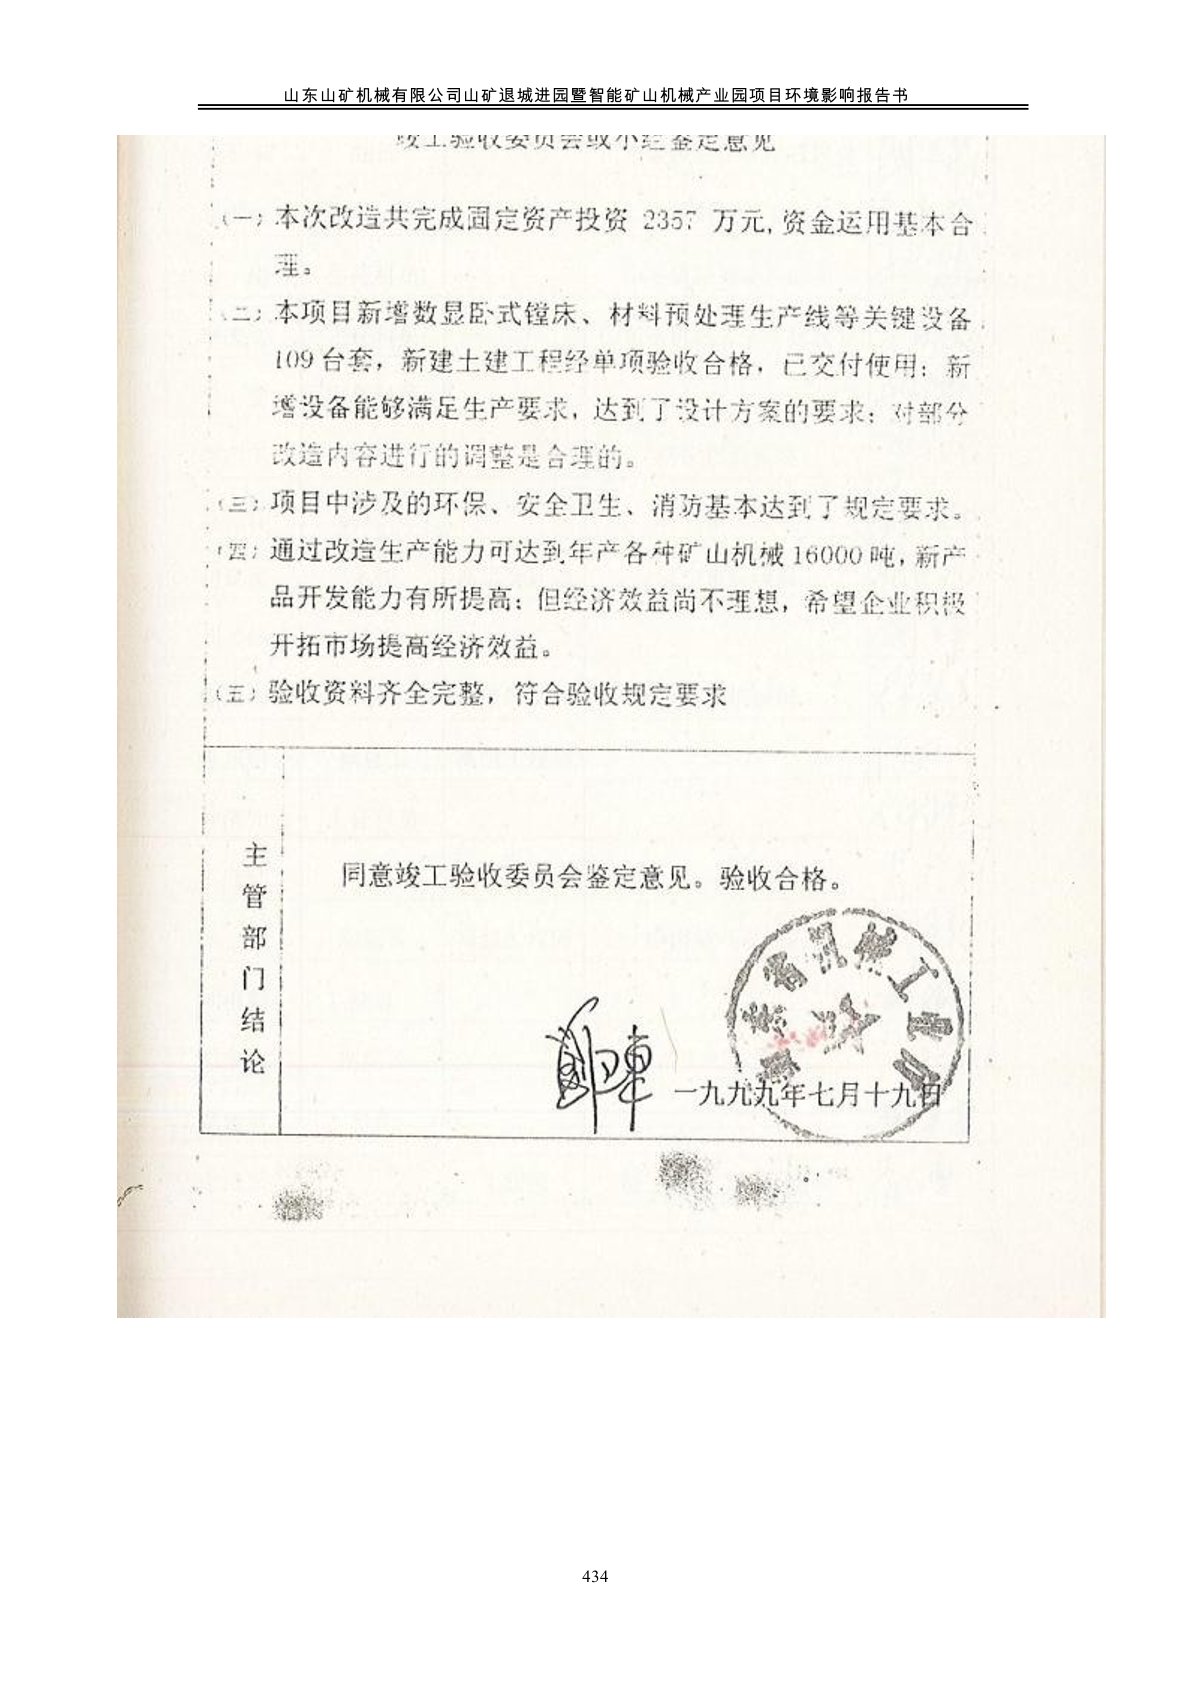 山东山矿机械有限公司山矿退城进园暨智能矿山机械产业园项目环境影响报告书
竣工验收委员会或小组鉴定意见
（一）本次改造共完成固定资产投资 2357 万元,资金运用基本合
理。
（二）本项目新增数显卧式镗床、材料预处理生产线等关键设备
109台套，新建土建工程经单项验收合格，已交付使用；新
增设备能够满足生产要求，达到了设计方案的要求；对部分
改造内容进行的调整是合理的。
（三）项目中涉及的环保、安全卫生、消防基本达到了规定要求。
（四）通过改造生产能力可达到年产各种矿山机械16000吨,新产
品开发能力有所提高；但经济效益尚不理想，希望企业积极
开拓市场提高经济效益。
（五）验收资料齐全完整，符合验收规定要求
主管部门结论
同意竣工验收委员会鉴定意见。验收合格。
山东省机械工业厅
一九九九年七月十九日
434